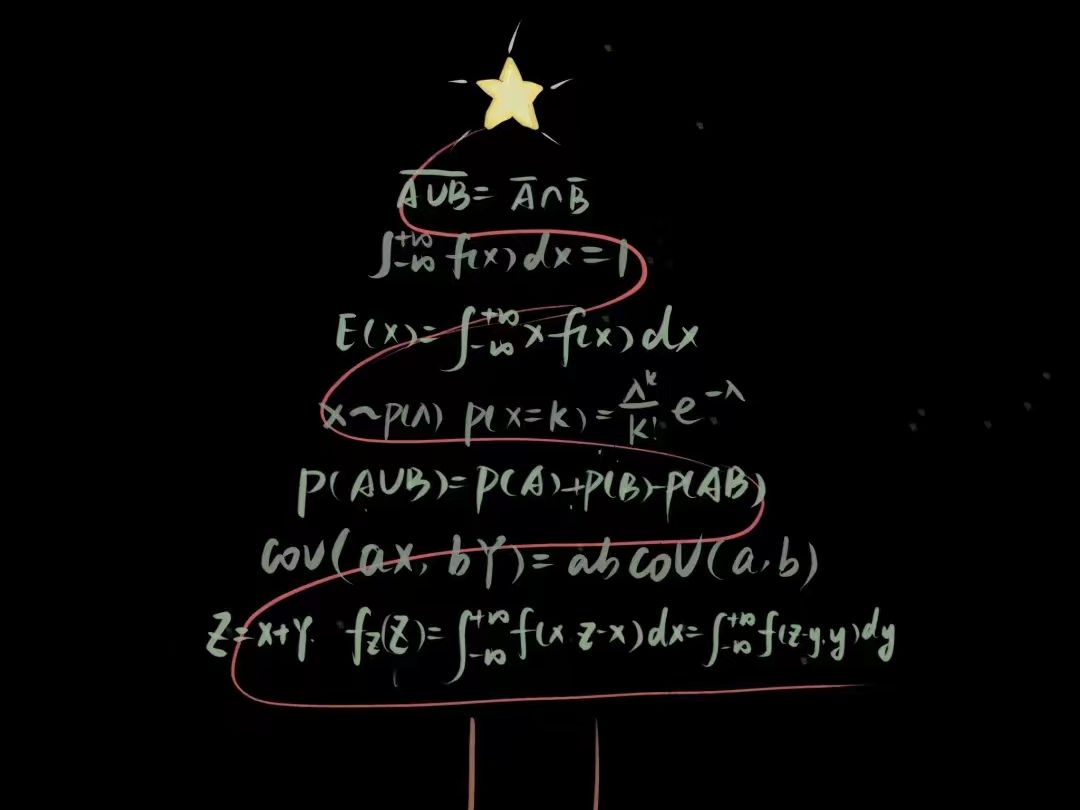 A̅∪̅B̅ = A̅∩B̅
∫₋∞⁺∞ f(x)dx=1
E(x)=∫₋∞⁺∞ xf(x)dx
x~p(λ) p(x=k)=λᵏ/k! e^-λ
P(A∪B)=P(A)+P(B)-P(AB)
cov(ax, bY)=abcov(a,b)
Z=x+Y. f_Z(Z)=∫₋∞⁺∞ f(x z-x)dx=∫₋∞⁺∞ f(z-y,y)dy